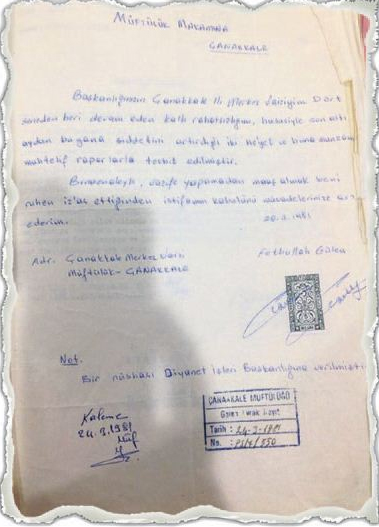 MÜFTÜLÜK MAKAMINA
ÇANAKKALE
Başkanlığınızın Çanakkale İli Merkez Vaiziyim. Dört
seneden beri devam eden kalb rahatsızlığım, hususiyle son altı
aydan bu yana şiddetini artırdığı iki hey'et ve buna munzam
muhtelif raporlarla tesbit edilmiştir.
Binaenaleyh, vazife yapamadan maaş almak beni
ruhen iz'aç ettiğinden istifamın kabulünü müsaadelerinize arz
ederim.
20.3.1981
Adr. Çanakkale Merkez Vaizi
Fethullah Gülen
Müftülük - ÇANAKKALE
Not.
Bir nüshası Diyanet İşleri Başkanlığına verilmiştir
Kaleme
24.3.1981
Müf
ÇANAKKALE MÜFTÜLÜĞÜ
Gelen Evrak Kayıt
Tarih : 24-3-1981
No. :